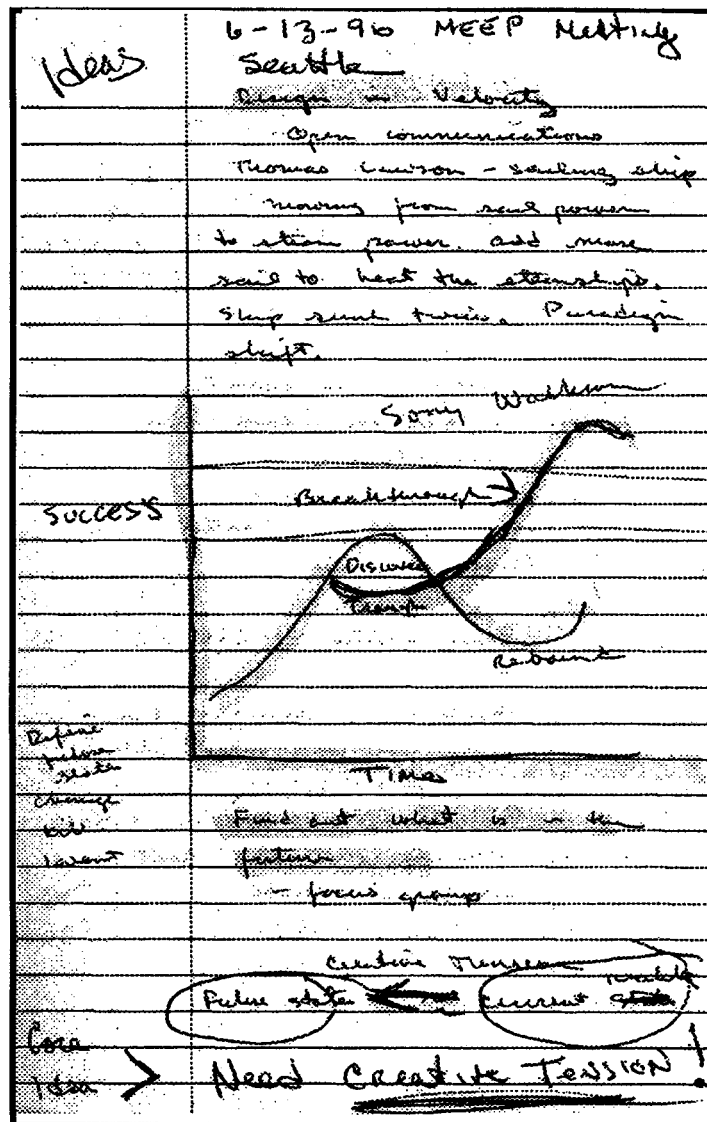 Ideas
6-13-96 MEEP Meeting
Seattle
Design in Velocity
Open communications
Thomas Lawson - sailing ship
moving from sail power
to steam power. add more
sail to beat the steamships.
Ship sunk twice. Paradigm
shift.
Sony Walkman
Breakthrough
SUCCESS
Discover
Trough
Rebound
TIME
Define
future
state
change
Find out what is in the
future
- focus group
Creative Tension
Future state
current state
Core
Idea > Need Creative TENSION!